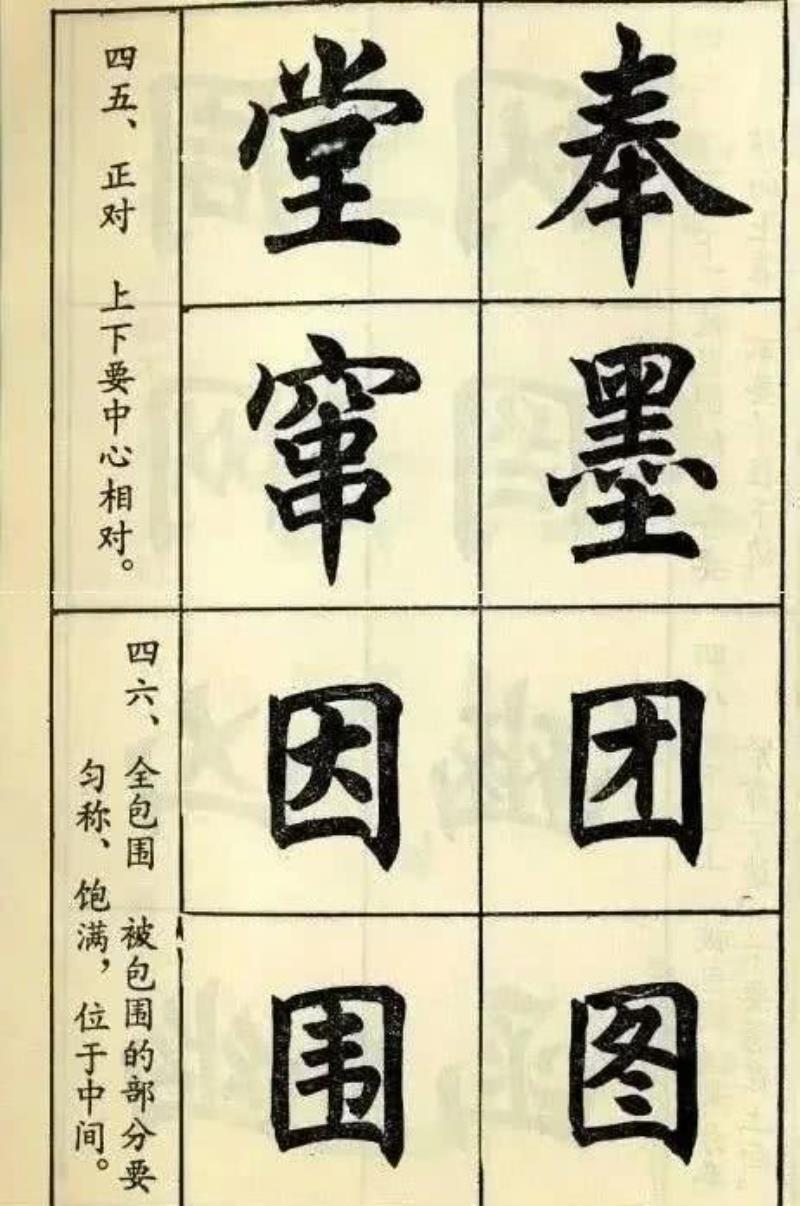 四五、正对 上下要中心相对。
堂奉
窜墨
四六、全包围 被包围的部分要
匀称、饱满，位于中间。
因团
围图